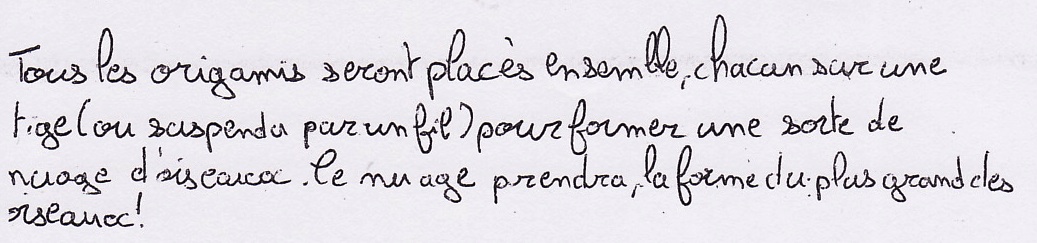 Tous les origamis seront placés ensemble, chacun sur une
tige (ou suspendu par un fil) pour former une sorte de
nuage d'oiseaux. Ce nuage prendra, la forme du plus grand des
oiseaux!